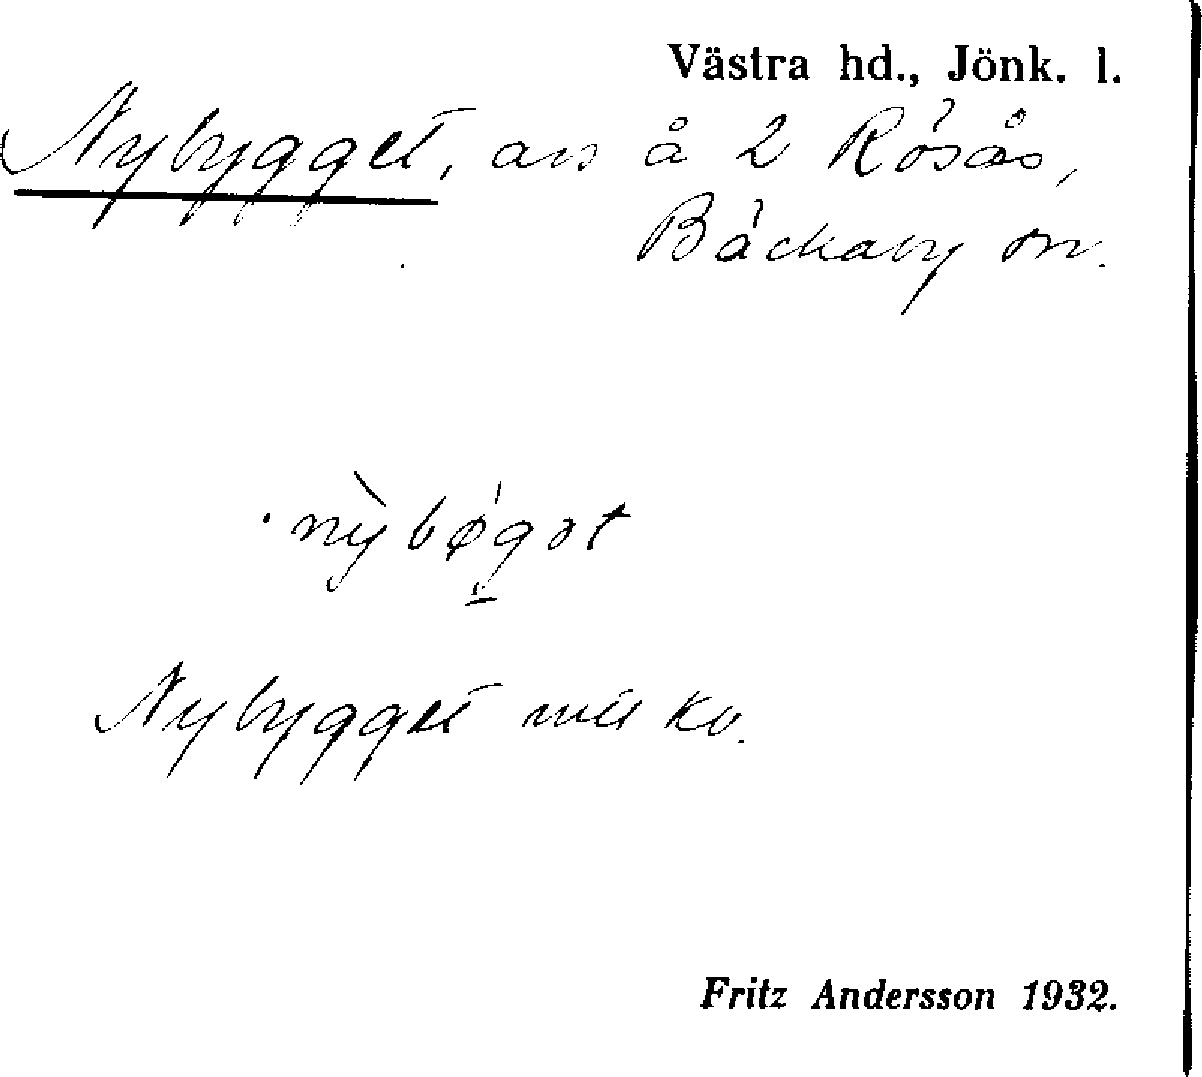 Västra hd., Jönk. l.
Nybygget, avs å 2 Rösås,
Bäckaby sn.
nỳbøgət
Nybygget
Fritz Andersson 1932.